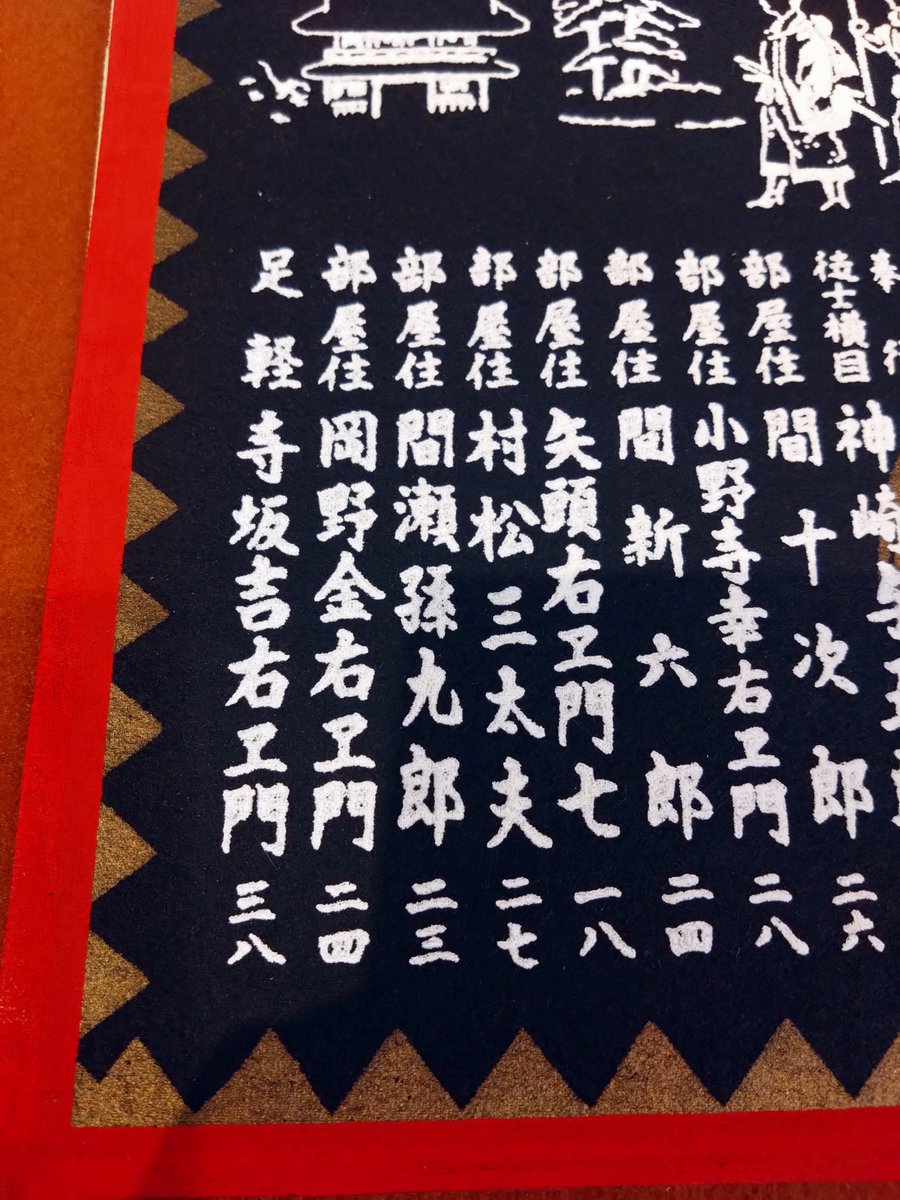 徒士横目 神崎
部屋住 間十次郎 二六
部屋住 小野寺幸右ヱ門 二八
部屋住 間新六郎 二四
部屋住 矢頭右ヱ門七 一八
部屋住 村松三太夫 二七
部屋住 間瀬孫九郎 二三
部屋住 岡野金右ヱ門 二四
足軽 寺坂吉右ヱ門 三八